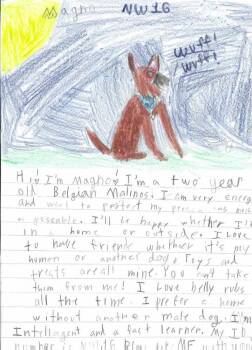 Magno NW16
Wuff!
Wuff!
Hi! I'm Magno! I'm a two year
old Belgian Malinos. I am very energy
and want to protect my
as possible. I'll be happy whether I'm
in a home or outside. I love
to have friends whether it's my
human or another dog. Toys and
treats are all mine. You can't take
them from me! I love belly rubs
all the time. I prefer a home
without another male dog. I'm
Intelligent and a fast learner. My ID
number is NW16